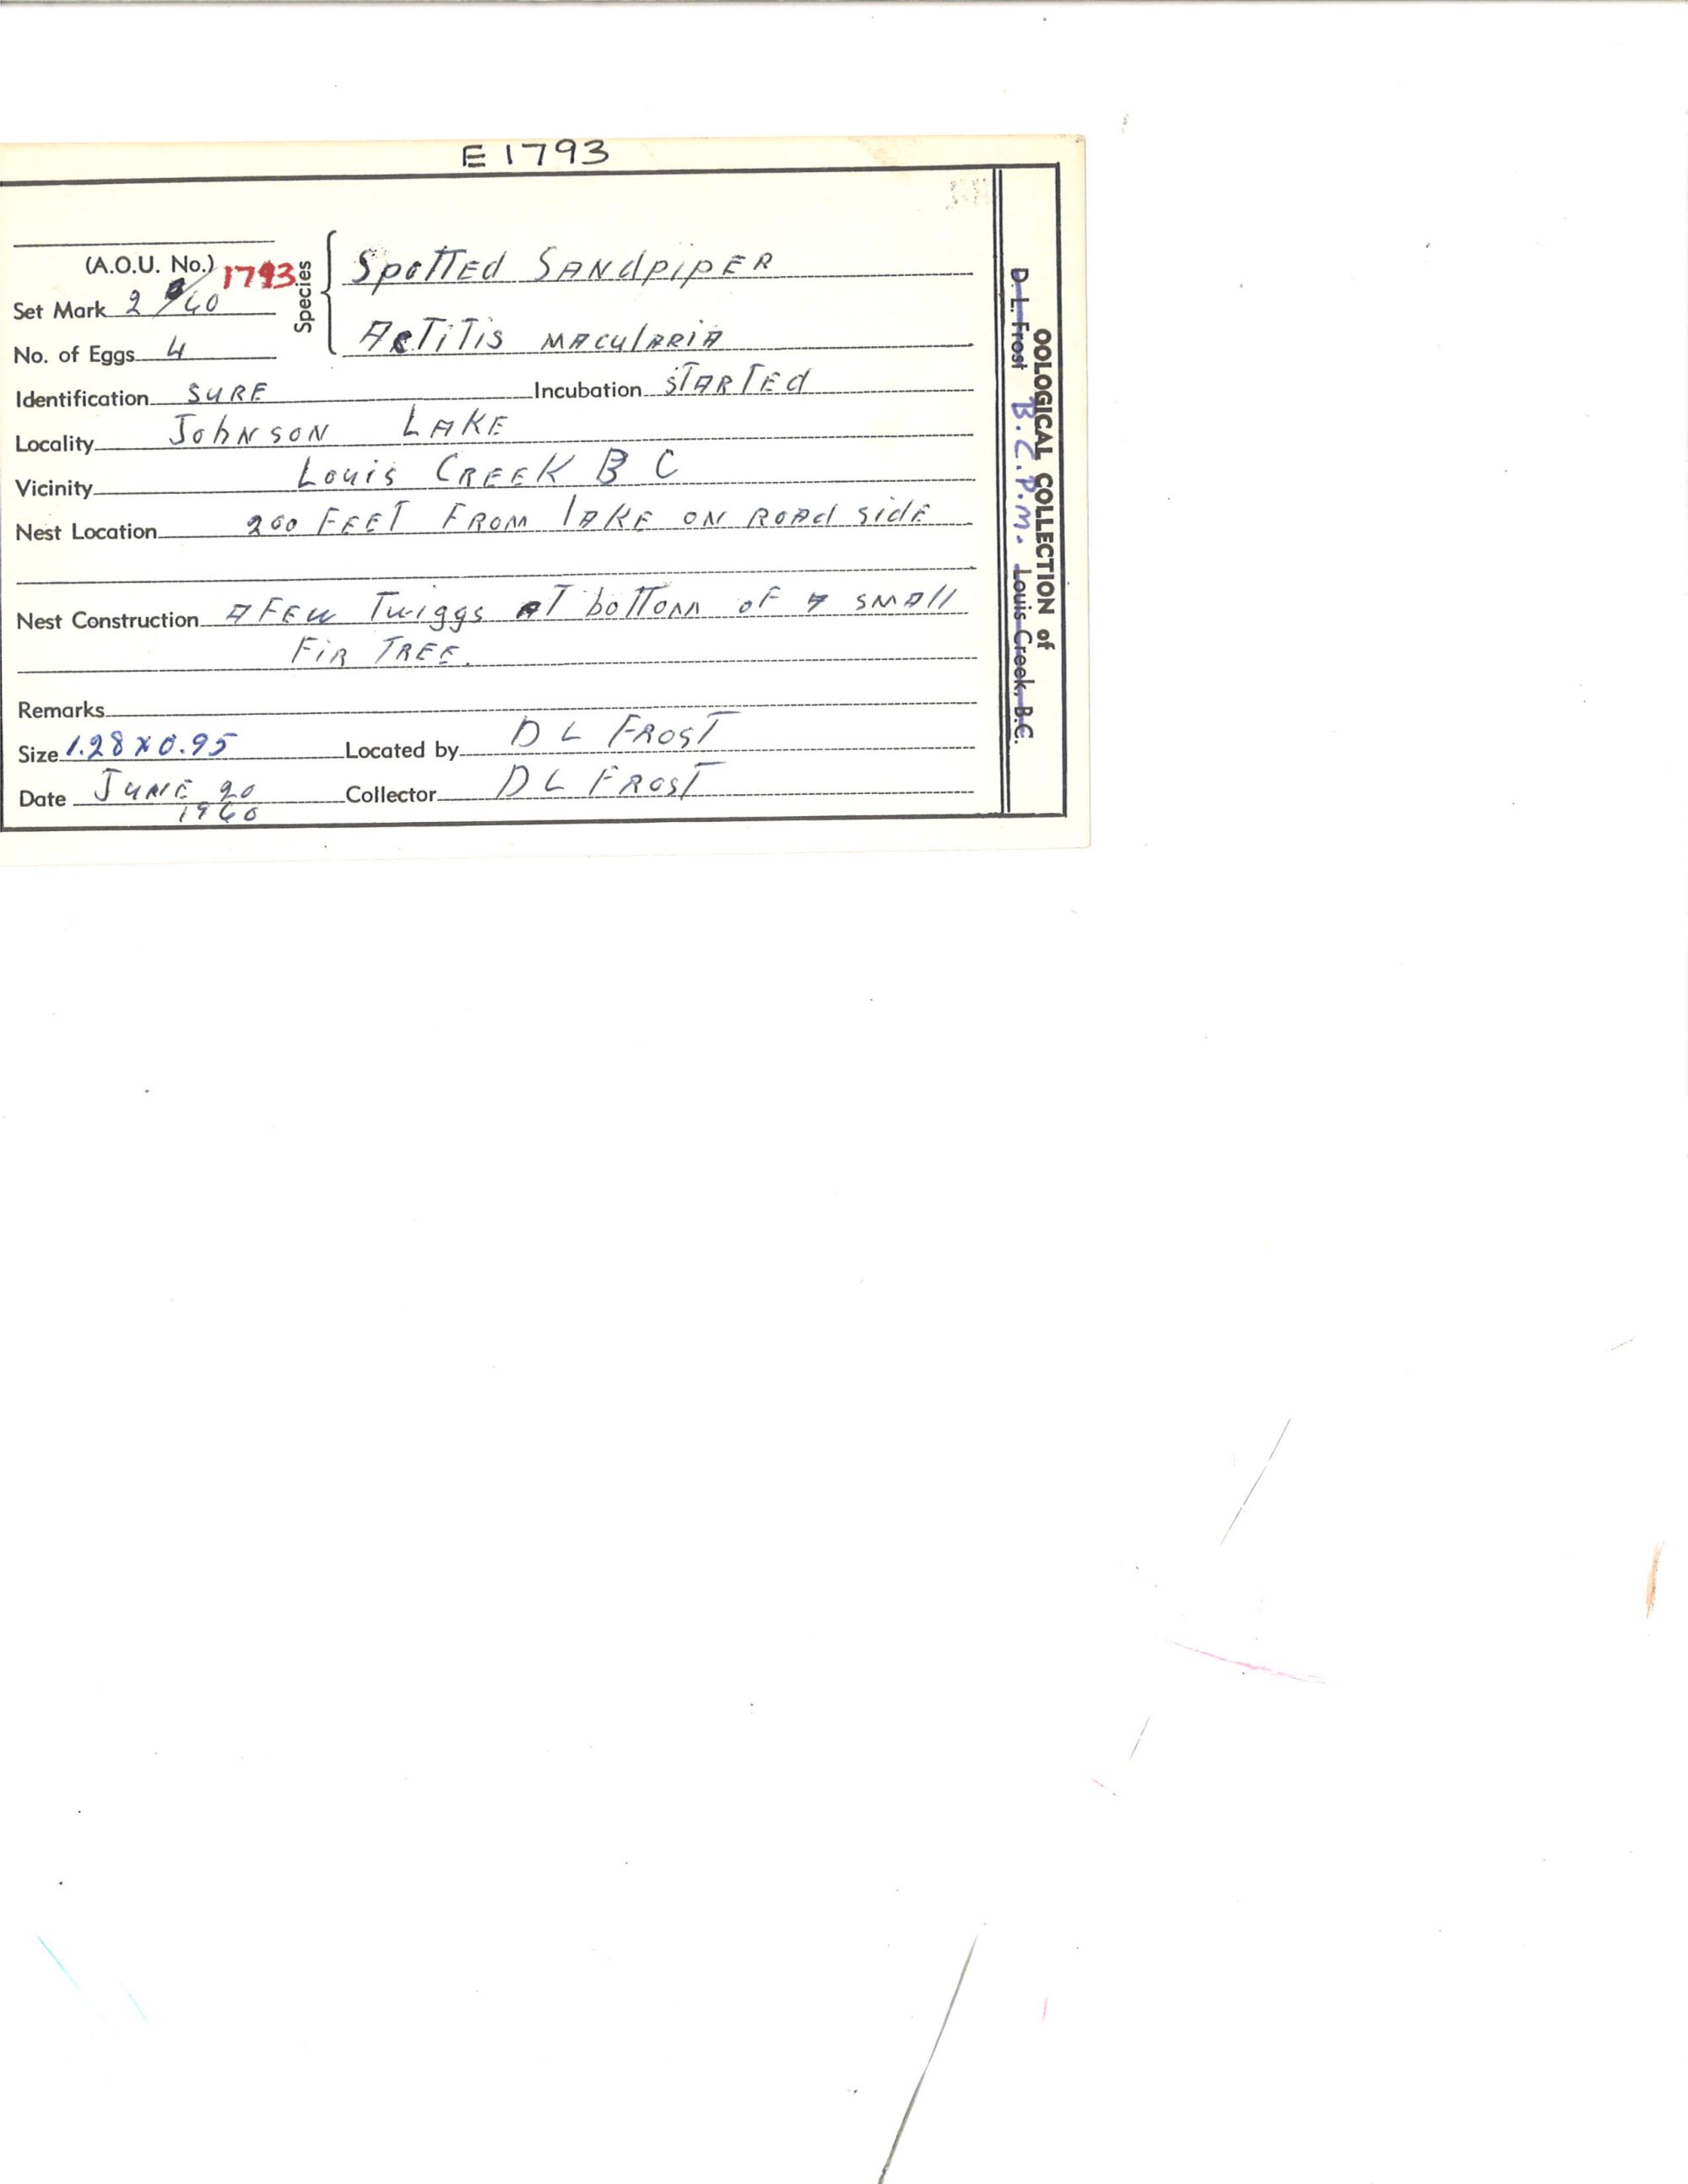 E 1793
(A.O.U. No.) 1793
Species
Spotted Sandpiper
Set Mark 2/60
Actitis macularia
No. of Eggs 4
Identification Sure Incubation Started
Locality Johnson Lake
Vicinity Louis Creek B C
Nest Location 200 Feet From lake on Road side
Nest Construction A Few Twiggs at bottom of a small
Fir Tree.
Remarks
Size 1.28 x 0.95 Located by D L Frost
Date June 20 Collector D L Frost
1960
OOLOGICAL COLLECTION of
D. L. Frost B.C.P.M. Louis Creek, B.C.